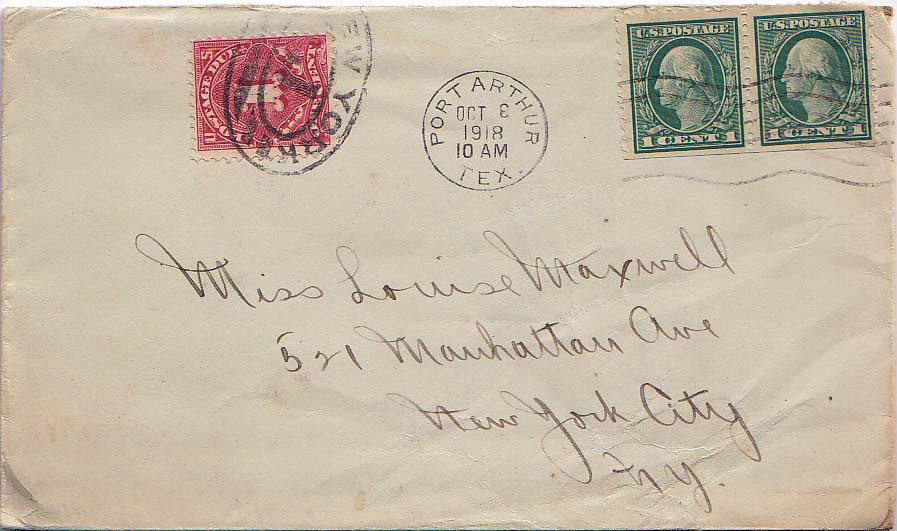 U.S.
POSTAGE DUE
NEW YORK
PORT ARTHUR
OCT 8
1918
10 AM
TEX.
U.S. POSTAGE
1 CENT 1
U.S. POSTAGE
1 CENT 1
Miss Louise Maxwell
521 Manhattan Ave
New York City
N.Y.